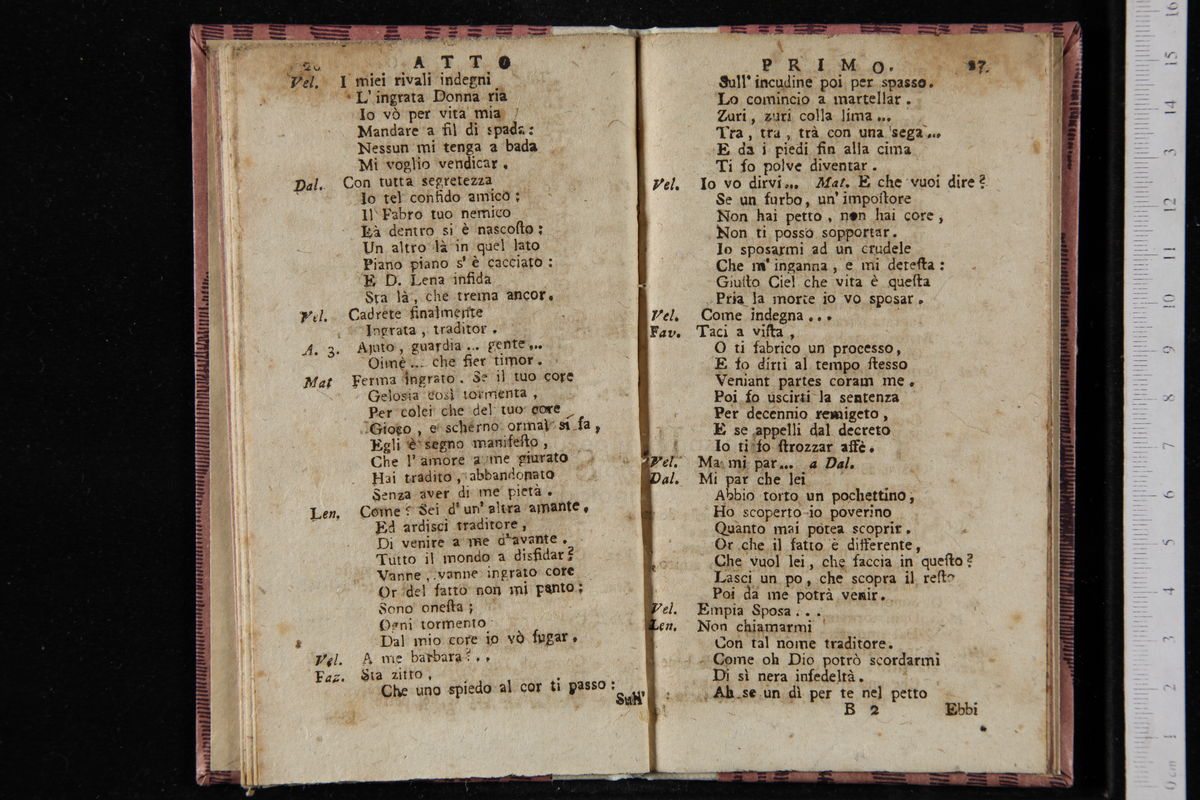 26 ATTO
Vel. I miei rivali indegni
L'ingrata Donna ria
Io vò per vita mia
Mandare a fil di spada:
Nessun mi tenga a bada
Mi voglio vendicar.
Dal. Con tutta segretezza
Io tel confido amico:
Il Fabro tuo nemico
Là dentro si è nascoſto:
Un altro là in quel lato
Piano piano s'è cacciato:
E D. Lena infida
Sta là, che trema ancor.
Vel. Cadrete finalmente
Ingrata, traditor.
A. 3. Ajuto, guardia... gente...
Oimè... che fier timor.
Mat Ferma ingrato. Se il tuo core
Gelosia così tormenta,
Per colei che del tuo core
Gioco, e scherno ormai si fa,
Egli è segno manifeſto,
Che l'amore a me giurato
Hai tradito, abbandonato
Senza aver di me pietà.
Len. Come? Sei d'un'altra amante,
Ed ardisci traditore,
Di venire a me d'avante.
Tutto il mondo a disfidar?
Vanne, vanne ingrato core
Or del fatto non mi panto;
Sono oneſta;
Ogni tormento
Dal mio core io vò fugar.
Vel. A me barbara?..
Faz. Sta zitto,
Che uno spiedo al cor ti passo:
Sull'
PRIMO. 27.
Sull'incudine poi per spasso.
Lo comincio a martellar.
Zuri, zuri colla lima...
Tra, tra, trà con una sega...
E da i piedi fin alla cima
Ti fo polve diventar.
Vel. Io vo dirvi... Mat. E che vuoi dire?
Se un furbo, un'impoſtore
Non hai petto, non hai core,
Non ti posso sopportar.
Io sposarmi ad un crudele
Che m'inganna, e mi deteſta:
Giuſto Ciel che vita è queſta
Pria la morte io vo sposar.
Vel. Come indegna...
Fav. Taci a viſta,
O ti fabrico un processo,
E fo dirti al tempo ſtesso
Veniant partes coram me.
Poi fo uscirti la sentenza
Per decennio remigeto,
E se appelli dal decreto
Io ti fo ſtrozzar affè.
Vel. Ma mi par... a Dal.
Dal. Mi par che lei
Abbio torto un pochettino,
Ho scoperto io poverino
Quanto mai potea scoprir.
Or che il fatto è differente,
Che vuol lei, che faccia in queſto?
Lasci un po, che scopra il reſto
Poi da me potrà venir.
Vel. Empia Sposa...
Len. Non chiamarmi
Con tal nome traditore.
Come oh Dio potrò scordarmi
Di sì nera infedeltà.
Ah se un dì per te nel petto
B 2 Ebbi